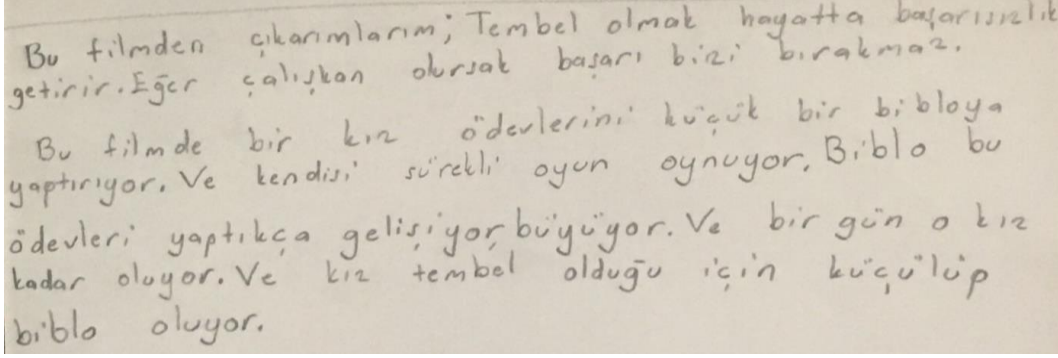 Bu filmden çıkarımlarım; Tembel olmak hayatta başarısızlık
getirir. Eğer çalışkan olursak başarı bizi bırakmaz.
Bu filmde bir kız ödevlerini küçük bir bibloya
yaptırıyor. Ve kendisi sürekli oyun oynuyor. Biblo bu
ödevleri yaptıkça gelişiyor, büyüyor. Ve bir gün o kız
kadar oluyor. Ve kız tembel olduğu için küçülüp
biblo oluyor.